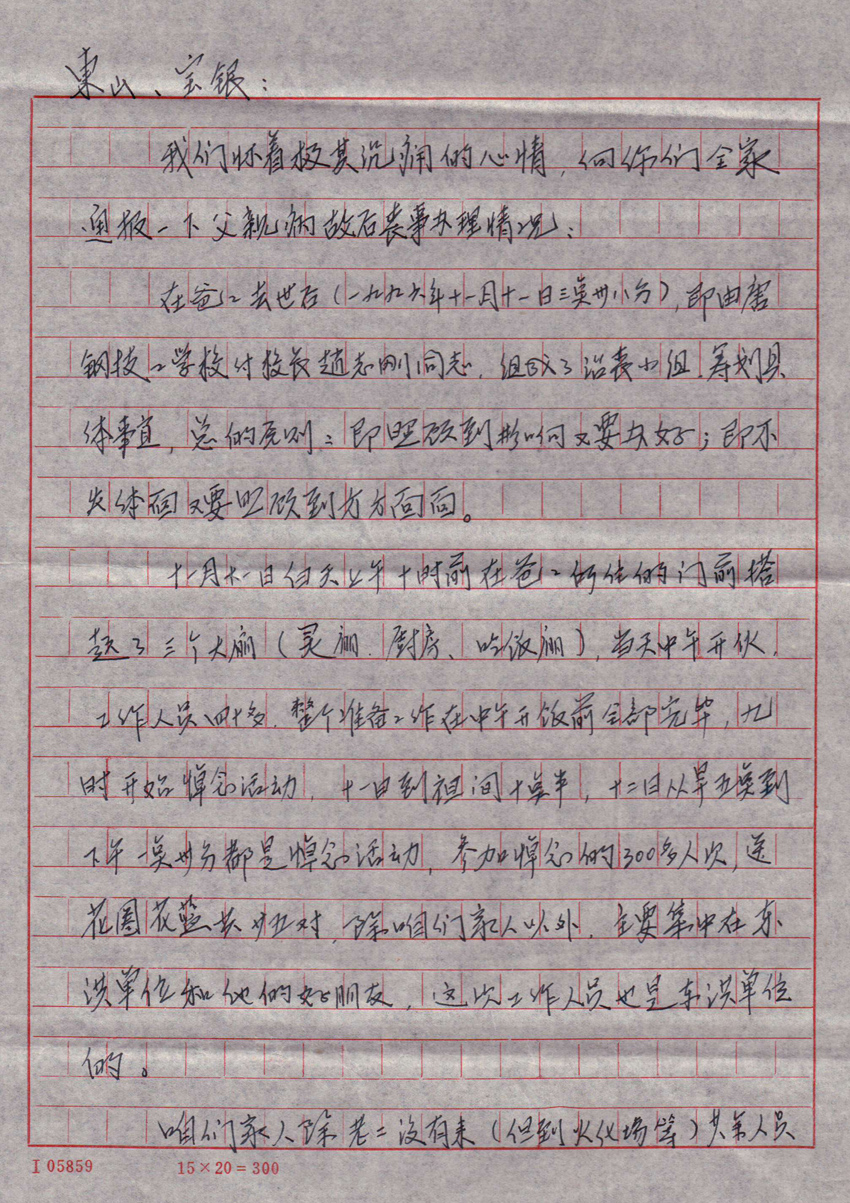 東山、宝银：
我们怀着极其沉痛的心情，向你们全家
通报一下父亲病故后丧事办理情况：
在爸〻去世后（一九九六年十一月十一日三点卅八分），即由唐
钢技工学校付校长趙志刚同志，组成了治丧小组，筹划具
体事宜，总的原则：即照顾到影响又要办好；即不
失体面又要照顾到方方面面。
十一月十一日白天上午十时前在爸〻所住的门前搭
起了三个大廟（灵廟、厨房、吃饭廟），当天中午开伙，
工作人员四十多，整个准备工作在中午开饭前全部完毕，九
时开始悼念活动，十一日到夜间十点半，十二日从早五点到
下午一点卅分都是悼念活动，参加悼念的300多人次，送
花圈花篮共对，除咱们家人以外，主要集中在东
洪单位和他的好朋友，这次工作人员也是东洪单位
的。
咱们家人除老二没有来（但到火化场等）其余人员
I 05859
15×20=300